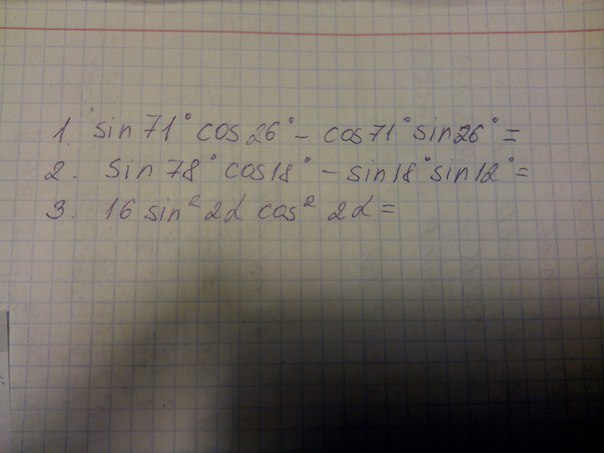 1. sin 71° cos 26° - cos 71° sin 26° =
2. sin 78° cos 18° - sin 18° sin 12° =
3. 16 sin² 2α cos² 2α =